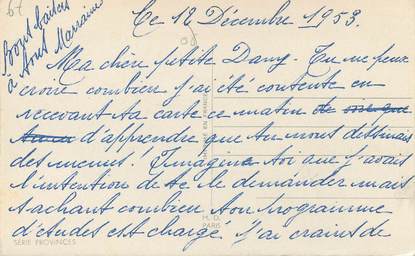 67
Bons baisers
à tous Marraine
Ce 12 Décembre 1953.
Ma chère petite Dany. Tu ne peux
croire combien j'ai été contente en
recevant ta carte ce matin
d'apprendre que tu nous destinais
des menus. Imagine toi que j'avais
l'intention de te le demander mais
sachant combien ton programme
d'études est chargé j'ai craint de
MADE IN FRANCE
H. D.
PARIS
SÉRIE PROVINCES